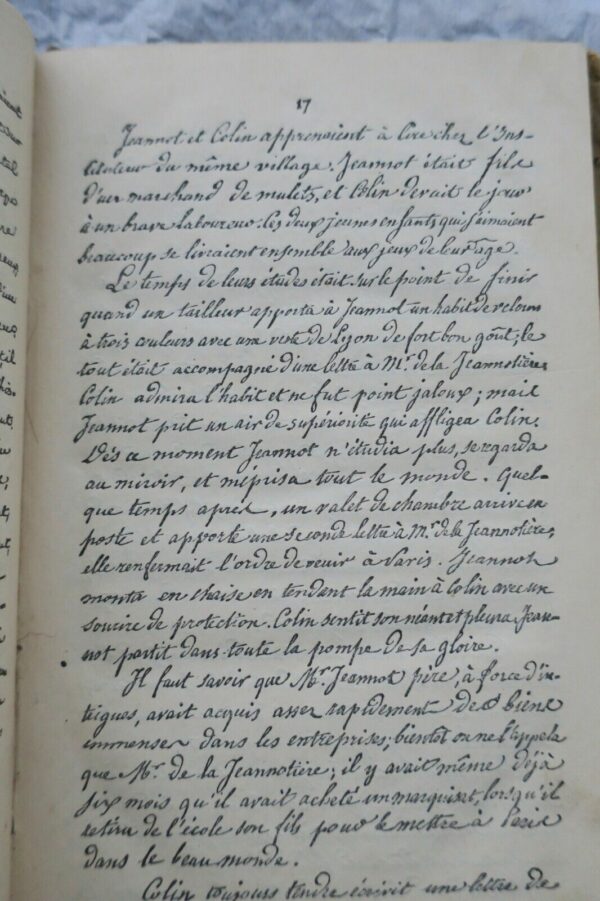 17
Jeannot et Colin apprenaient à lire chez l'Ins-
tituteur du même village. Jeannot était fils
d'un marchand de mulets, et Colin devait le jour
à un brave laboureur. Ces deux jeunes enfants qui s'aimaient
beaucoup se livraient ensemble aux jeux de leur age.
Le temps de leurs études était sur le point de finir
quand un tailleur apporta à Jeannot un habit de velours
à trois couleurs avec une veste de Lyon de fort bon goût; le
tout était accompagné d'une lettre à Mr. de la Jeannotière.
Colin admira l'habit et ne fut point jaloux; mais
Jeannot prit un air de supériorité qui affligea Colin.
Dès ce moment Jeannot n'étudia plus, se regarda
au miroir, et méprisa tout le monde. Quel-
que temps après, un valet de chambre arrive en
poste et apporte une seconde lettre à Mr. de la Jeannotière;
elle renfermait l'ordre de venir à Paris. Jeannot
monta en chaise en tendant la main à Colin avec un
sourire de protection. Colin sentit son néant et pleura. Jean-
not partit dans toute la pompe de sa gloire.
Il faut savoir que Mr. Jeannot père, à force d'in-
trigues, avait acquis assez rapidement des biens
immenses dans les entreprises; bientôt on ne l'appela
que Mr. de la Jeannotière; il y avait même déjà
six mois qu'il avait acheté un marquisat, lorsqu'il
retira de l'école son fils pour le mettre à Paris
dans le beau monde.
Colin toujours tendre écrivit une lettre de